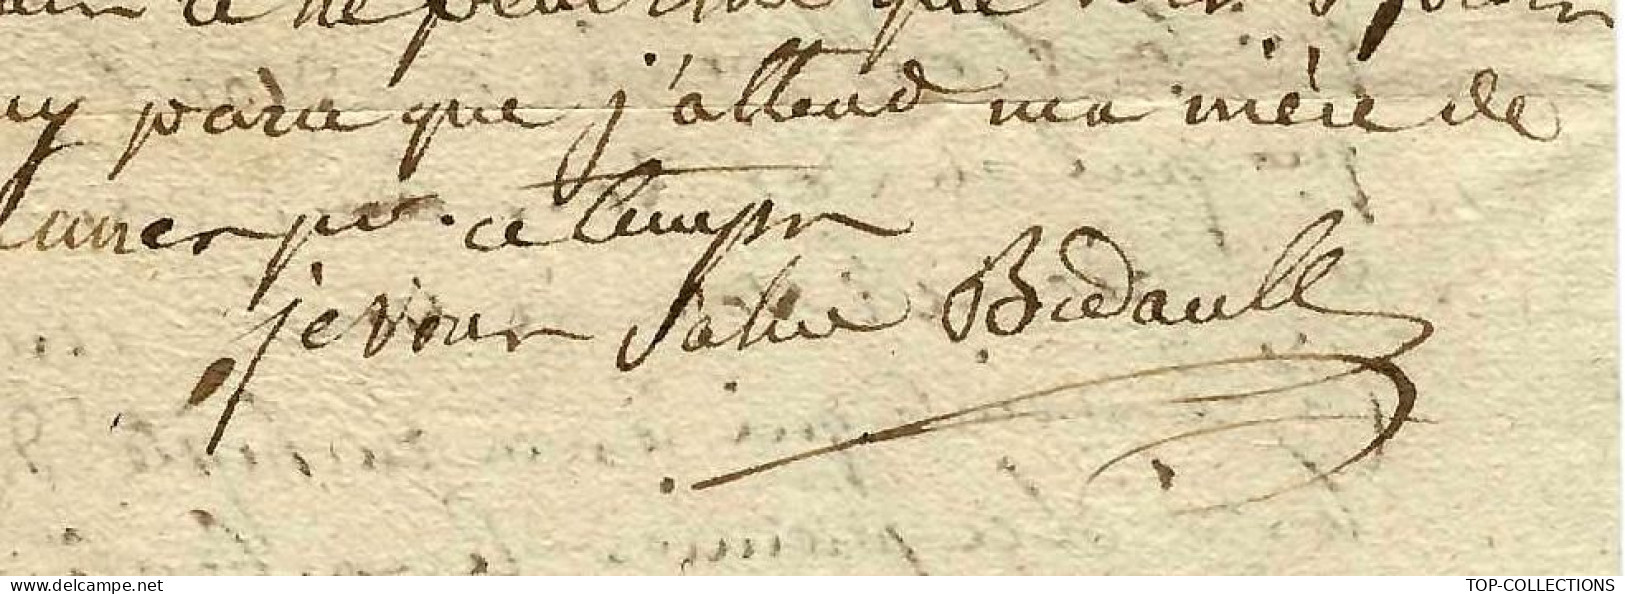 ce ne peut être que
parce que j'attend ma mère de
pr. ce temps
je vous salue Bidault
www.delcampe.net
TOP-COLLECTIONS